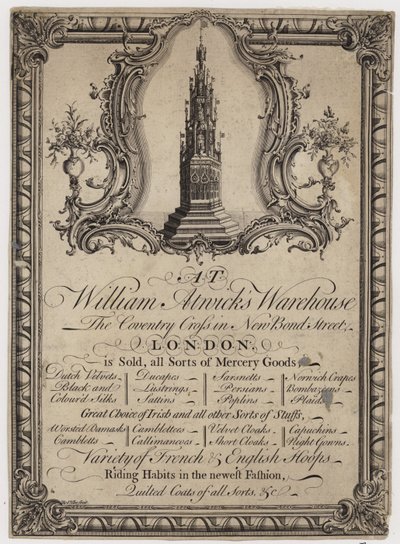 AT
William Atwick's Warehouse
The Coventry Cross in New Bond Street,
LONDON,
is Sold, all Sorts of Mercery Goods,
Dutch Velvets Ducapes Sarsnetts Norwich Crapes
Black and Lustrings Persians Bombazeens
Colour'd Silks Sattins Poplins Plaids
Great Choice of Irish and all other Sorts of Stuffs,
Worsted Damasks Cambletteos Velvet Cloaks Capuchins
Cambletts Callimancoes Short Cloaks Night Gowns.
Variety of French & English Hoops
Riding Habits in the newest Fashion,
Quilted Coats of all Sorts, &c.